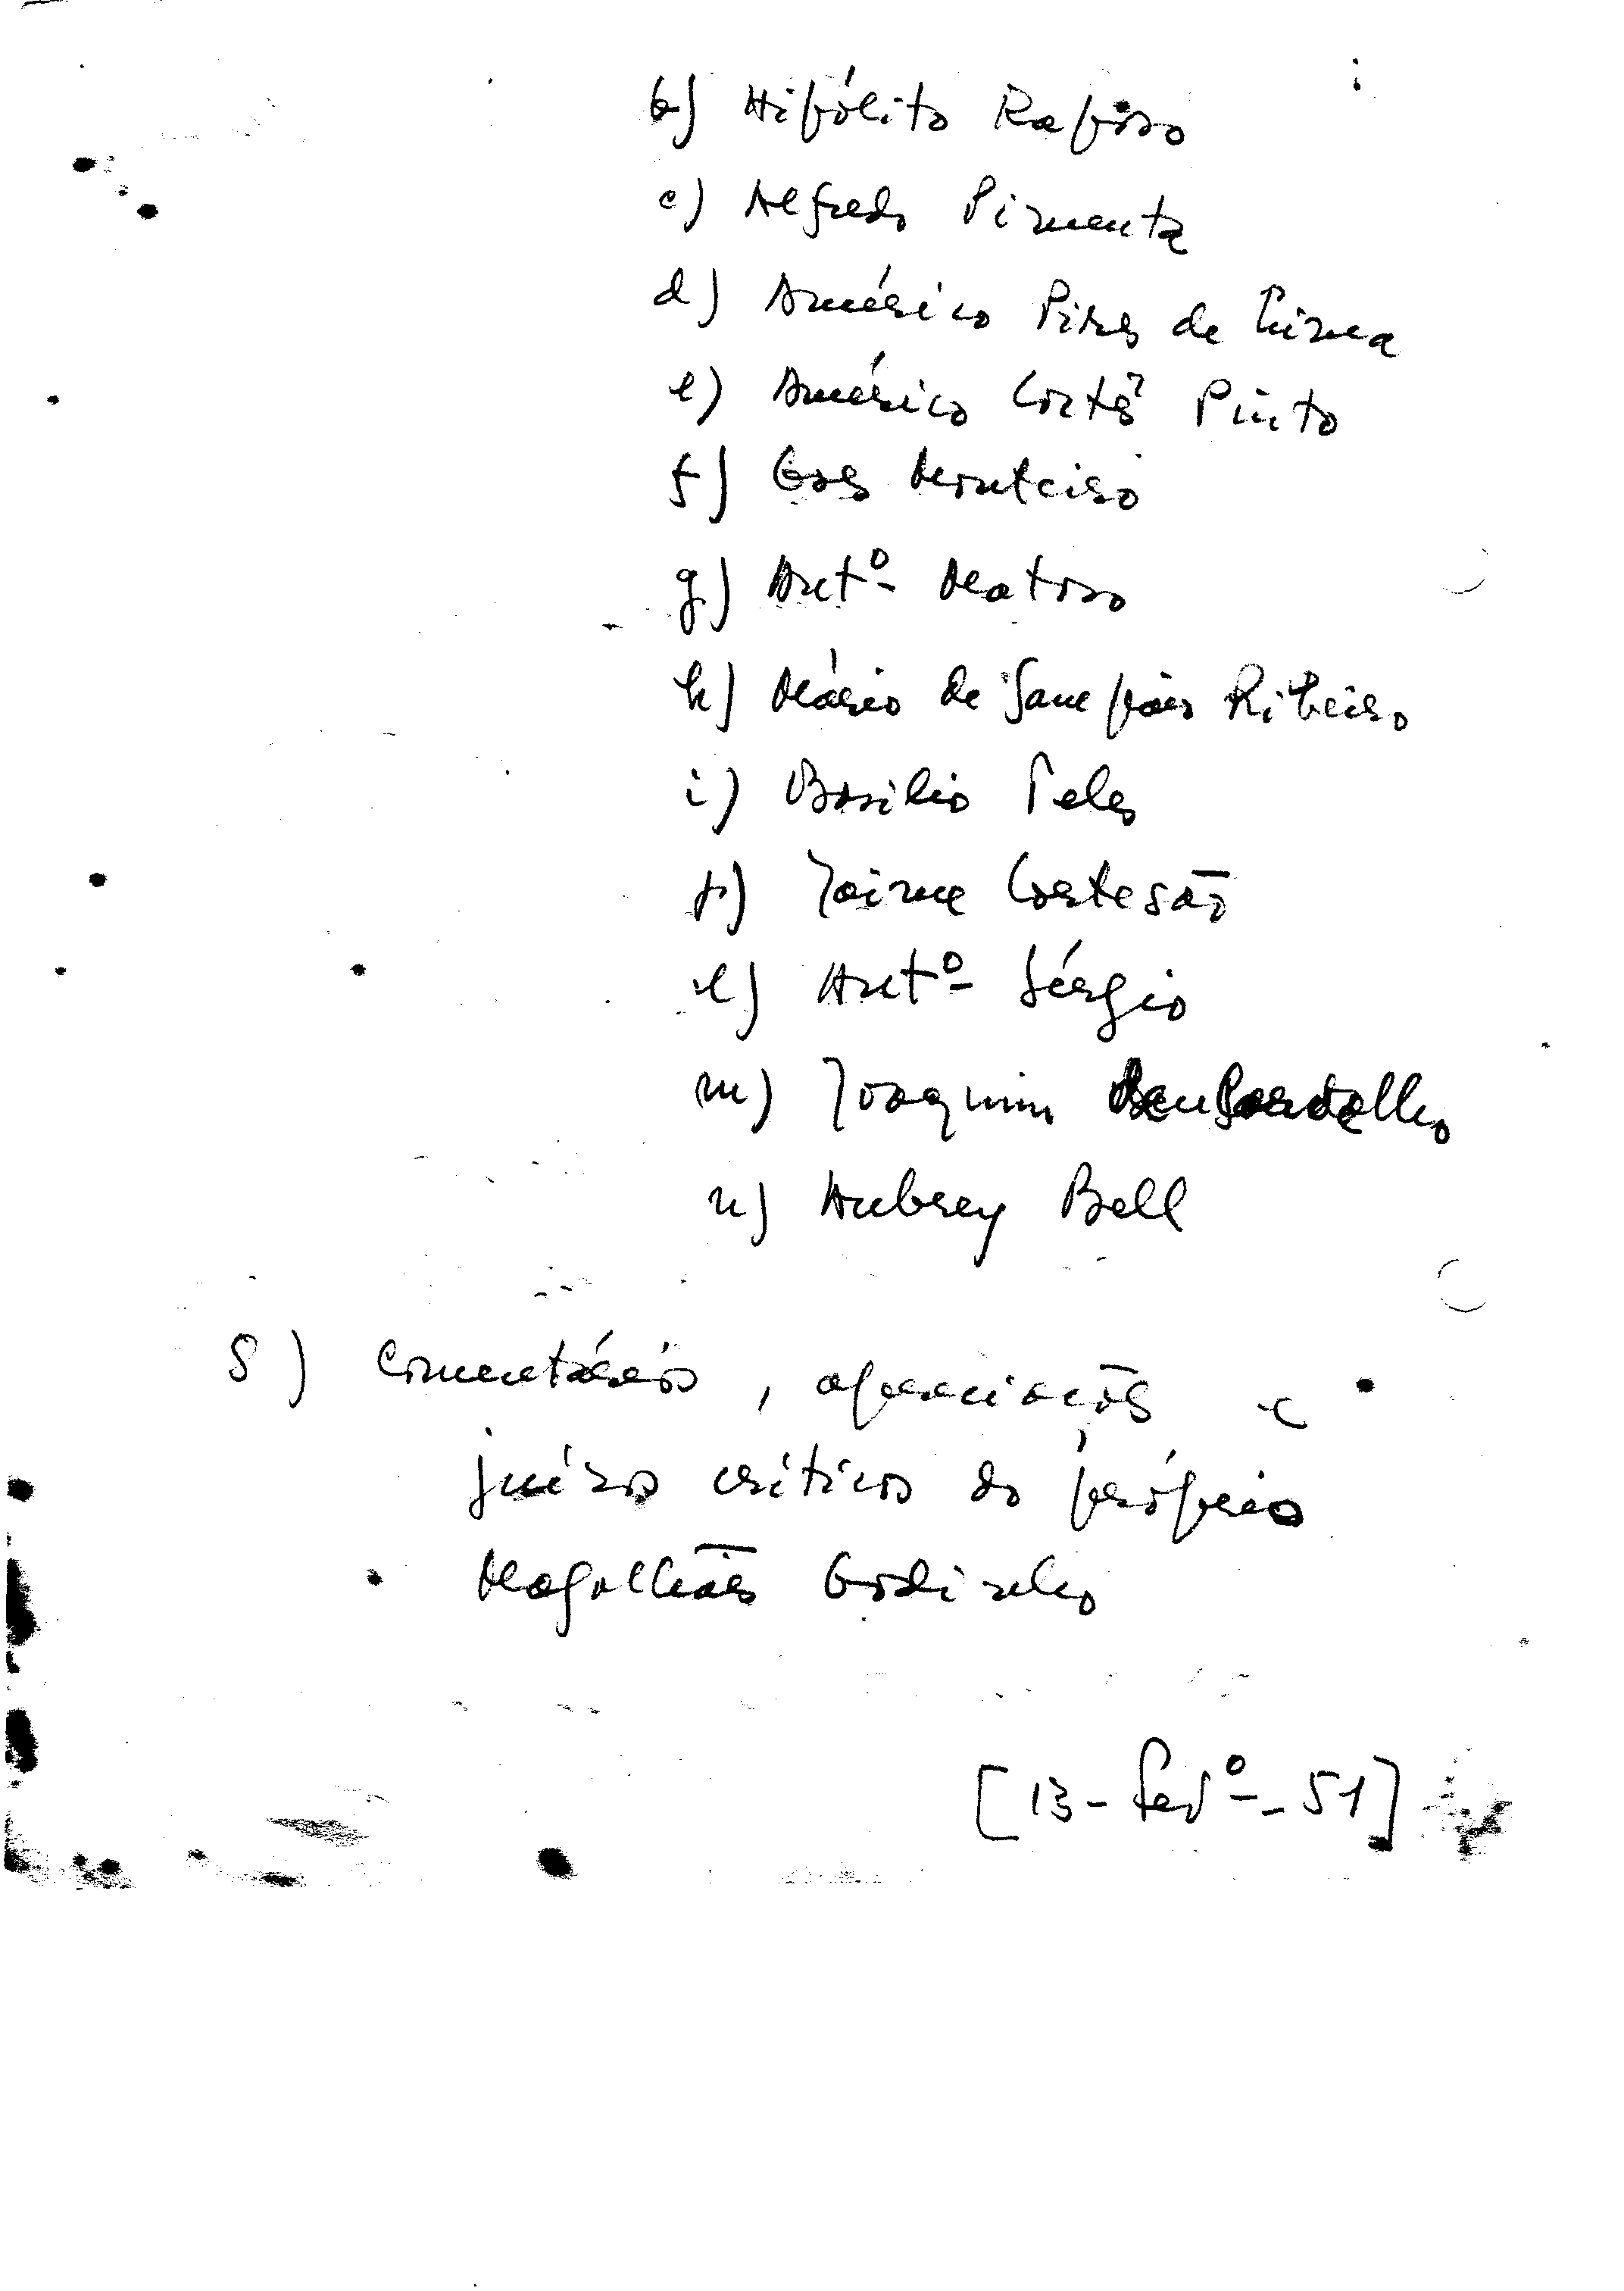 b) Hipólito Raposo
c) Alfredo Pimenta
d) Américo Pires de Lima
e) Américo Cortês Pinto
f) Gos Monteiro
g) Antº Matoso
h) Mário de Sampaio Ribeiro
i) Basílio Teles
j) Jaime Cortesão
l) Antº Sérgio
m) Joaquim Bensaude
n) Aubrey Bell
8) Comentários, apreciações e
juízos críticos do próprio
Magalhães Godinho
[13-Fevº-51]